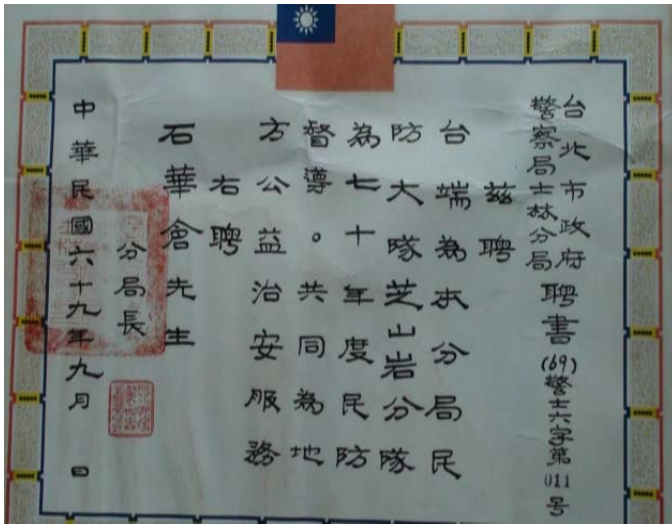 台北市政府
警察局士林分局
聘書
(69)警士六字第011号
茲聘
台端為本分局民
防大隊芝山岩分隊
為七十年度民防
督導。共同為地
方公益治安服務
右聘
石華倉先生
分局長
中華民國六十九年九月 日